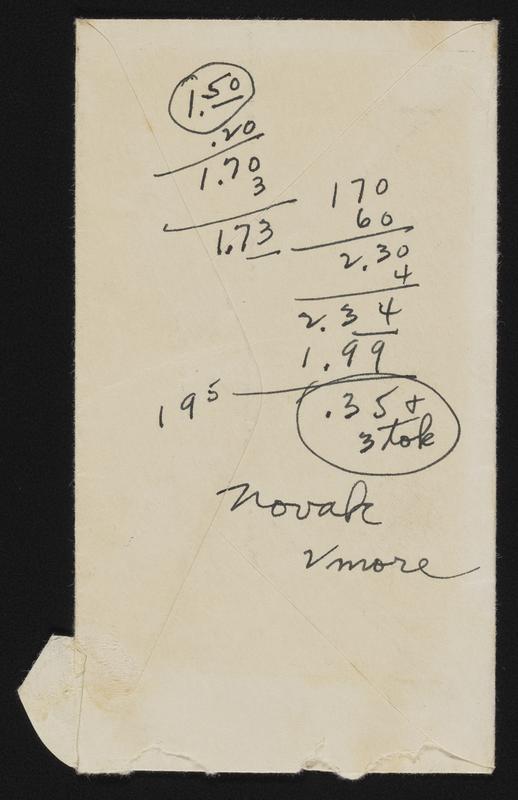 1.50
.20
1.70
3
1.73
170
60
2.30
4
2.34
1.99
195
.35 +
3 tok
Novak
2 more